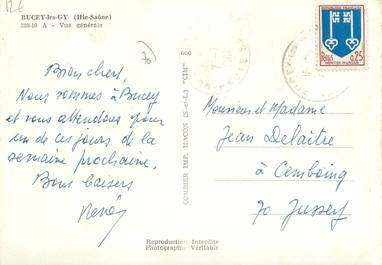 12€
BUCEY-les-GY (Hte-Saône)
323-10 A - Vue générale
70
Bien chers,
Nous sommes à Bucey
et vous attendons pour
un de ces jours de la
semaine prochaine.
Bons baisers
René
COMBIER IMP. MACON (S.-et-L.) "CIM"
REPUBLIQUE FRANCAISE
0,25
MONT-DE-MARSAN
Monsieur et Madame
Jean Delaitre
à Cemboing
70 Jussey
Reproduction Interdite
Photographie Véritable